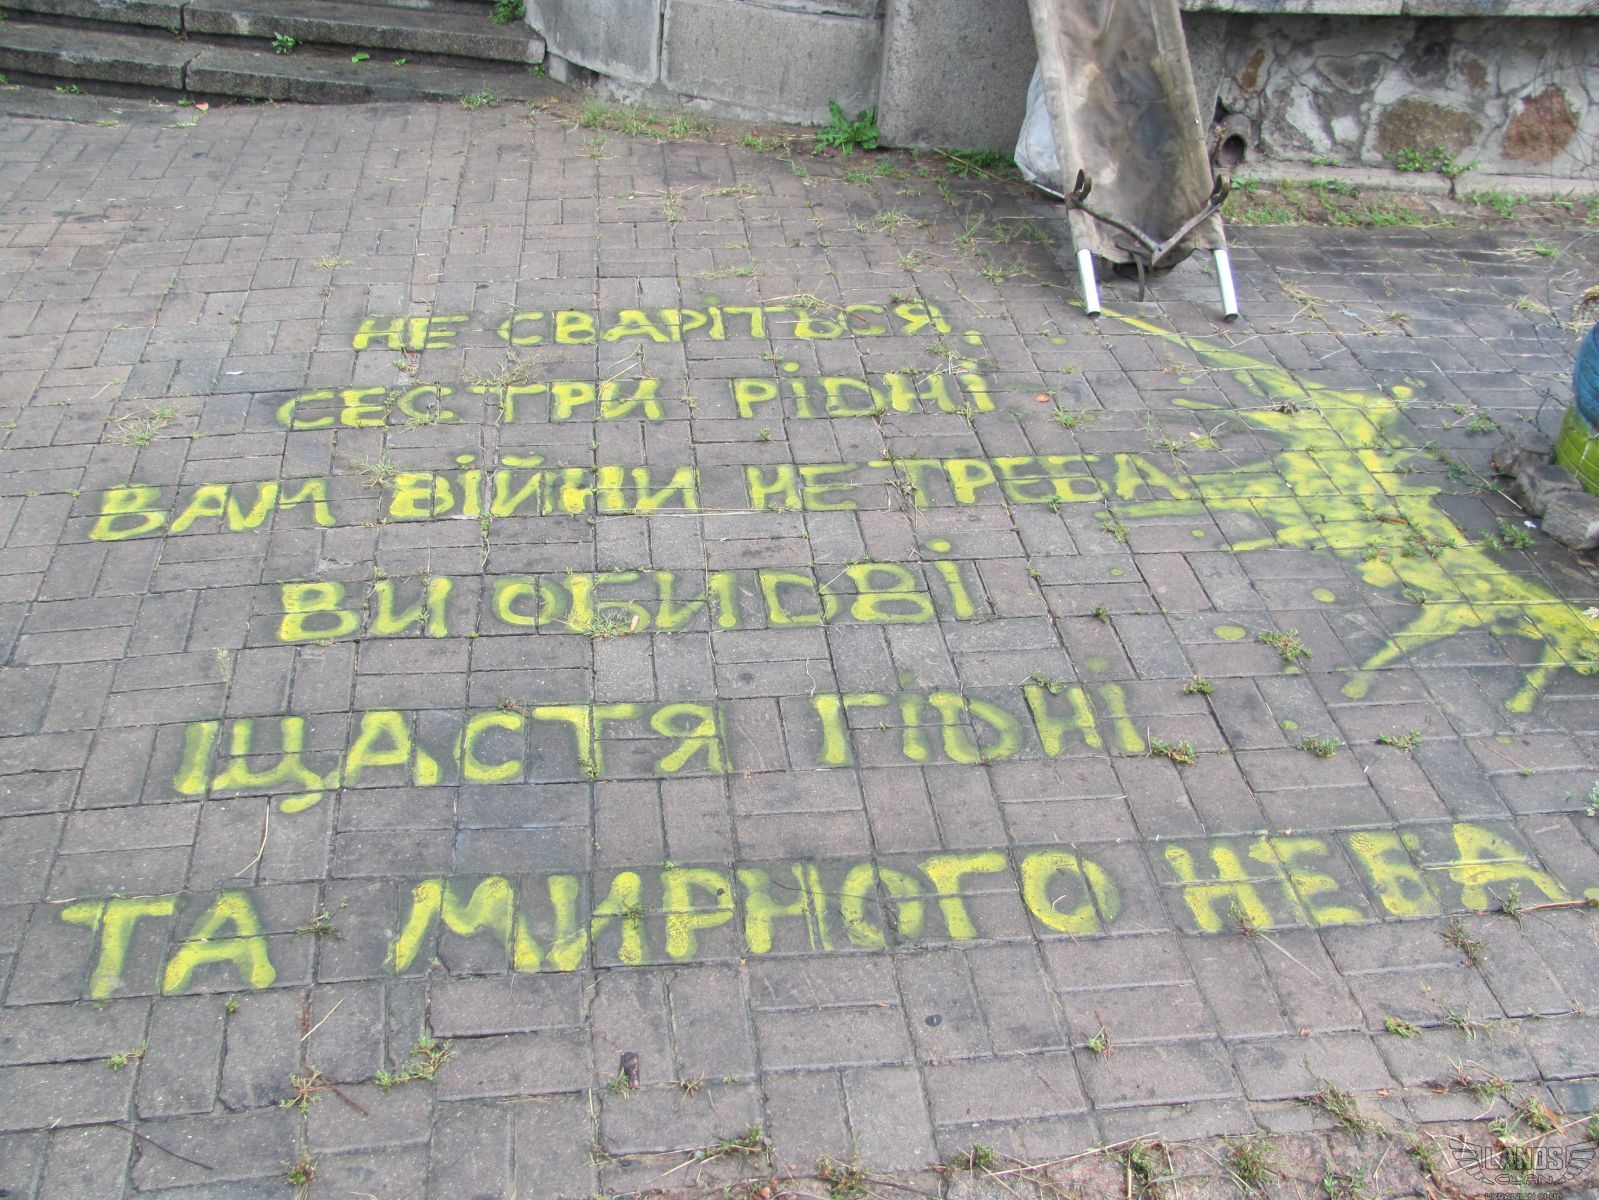 НЕ СВАРІТЬСЯ,
СЕСТРИ РІДНІ
ВАМ ВІЙНИ НЕ ТРЕБА
ВИ ОБИДВІ
ЩАСТЯ ГІДНІ
ТА МИРНОГО НЕБА.
LANOS
CLAN
UKRAINIAN CLUB